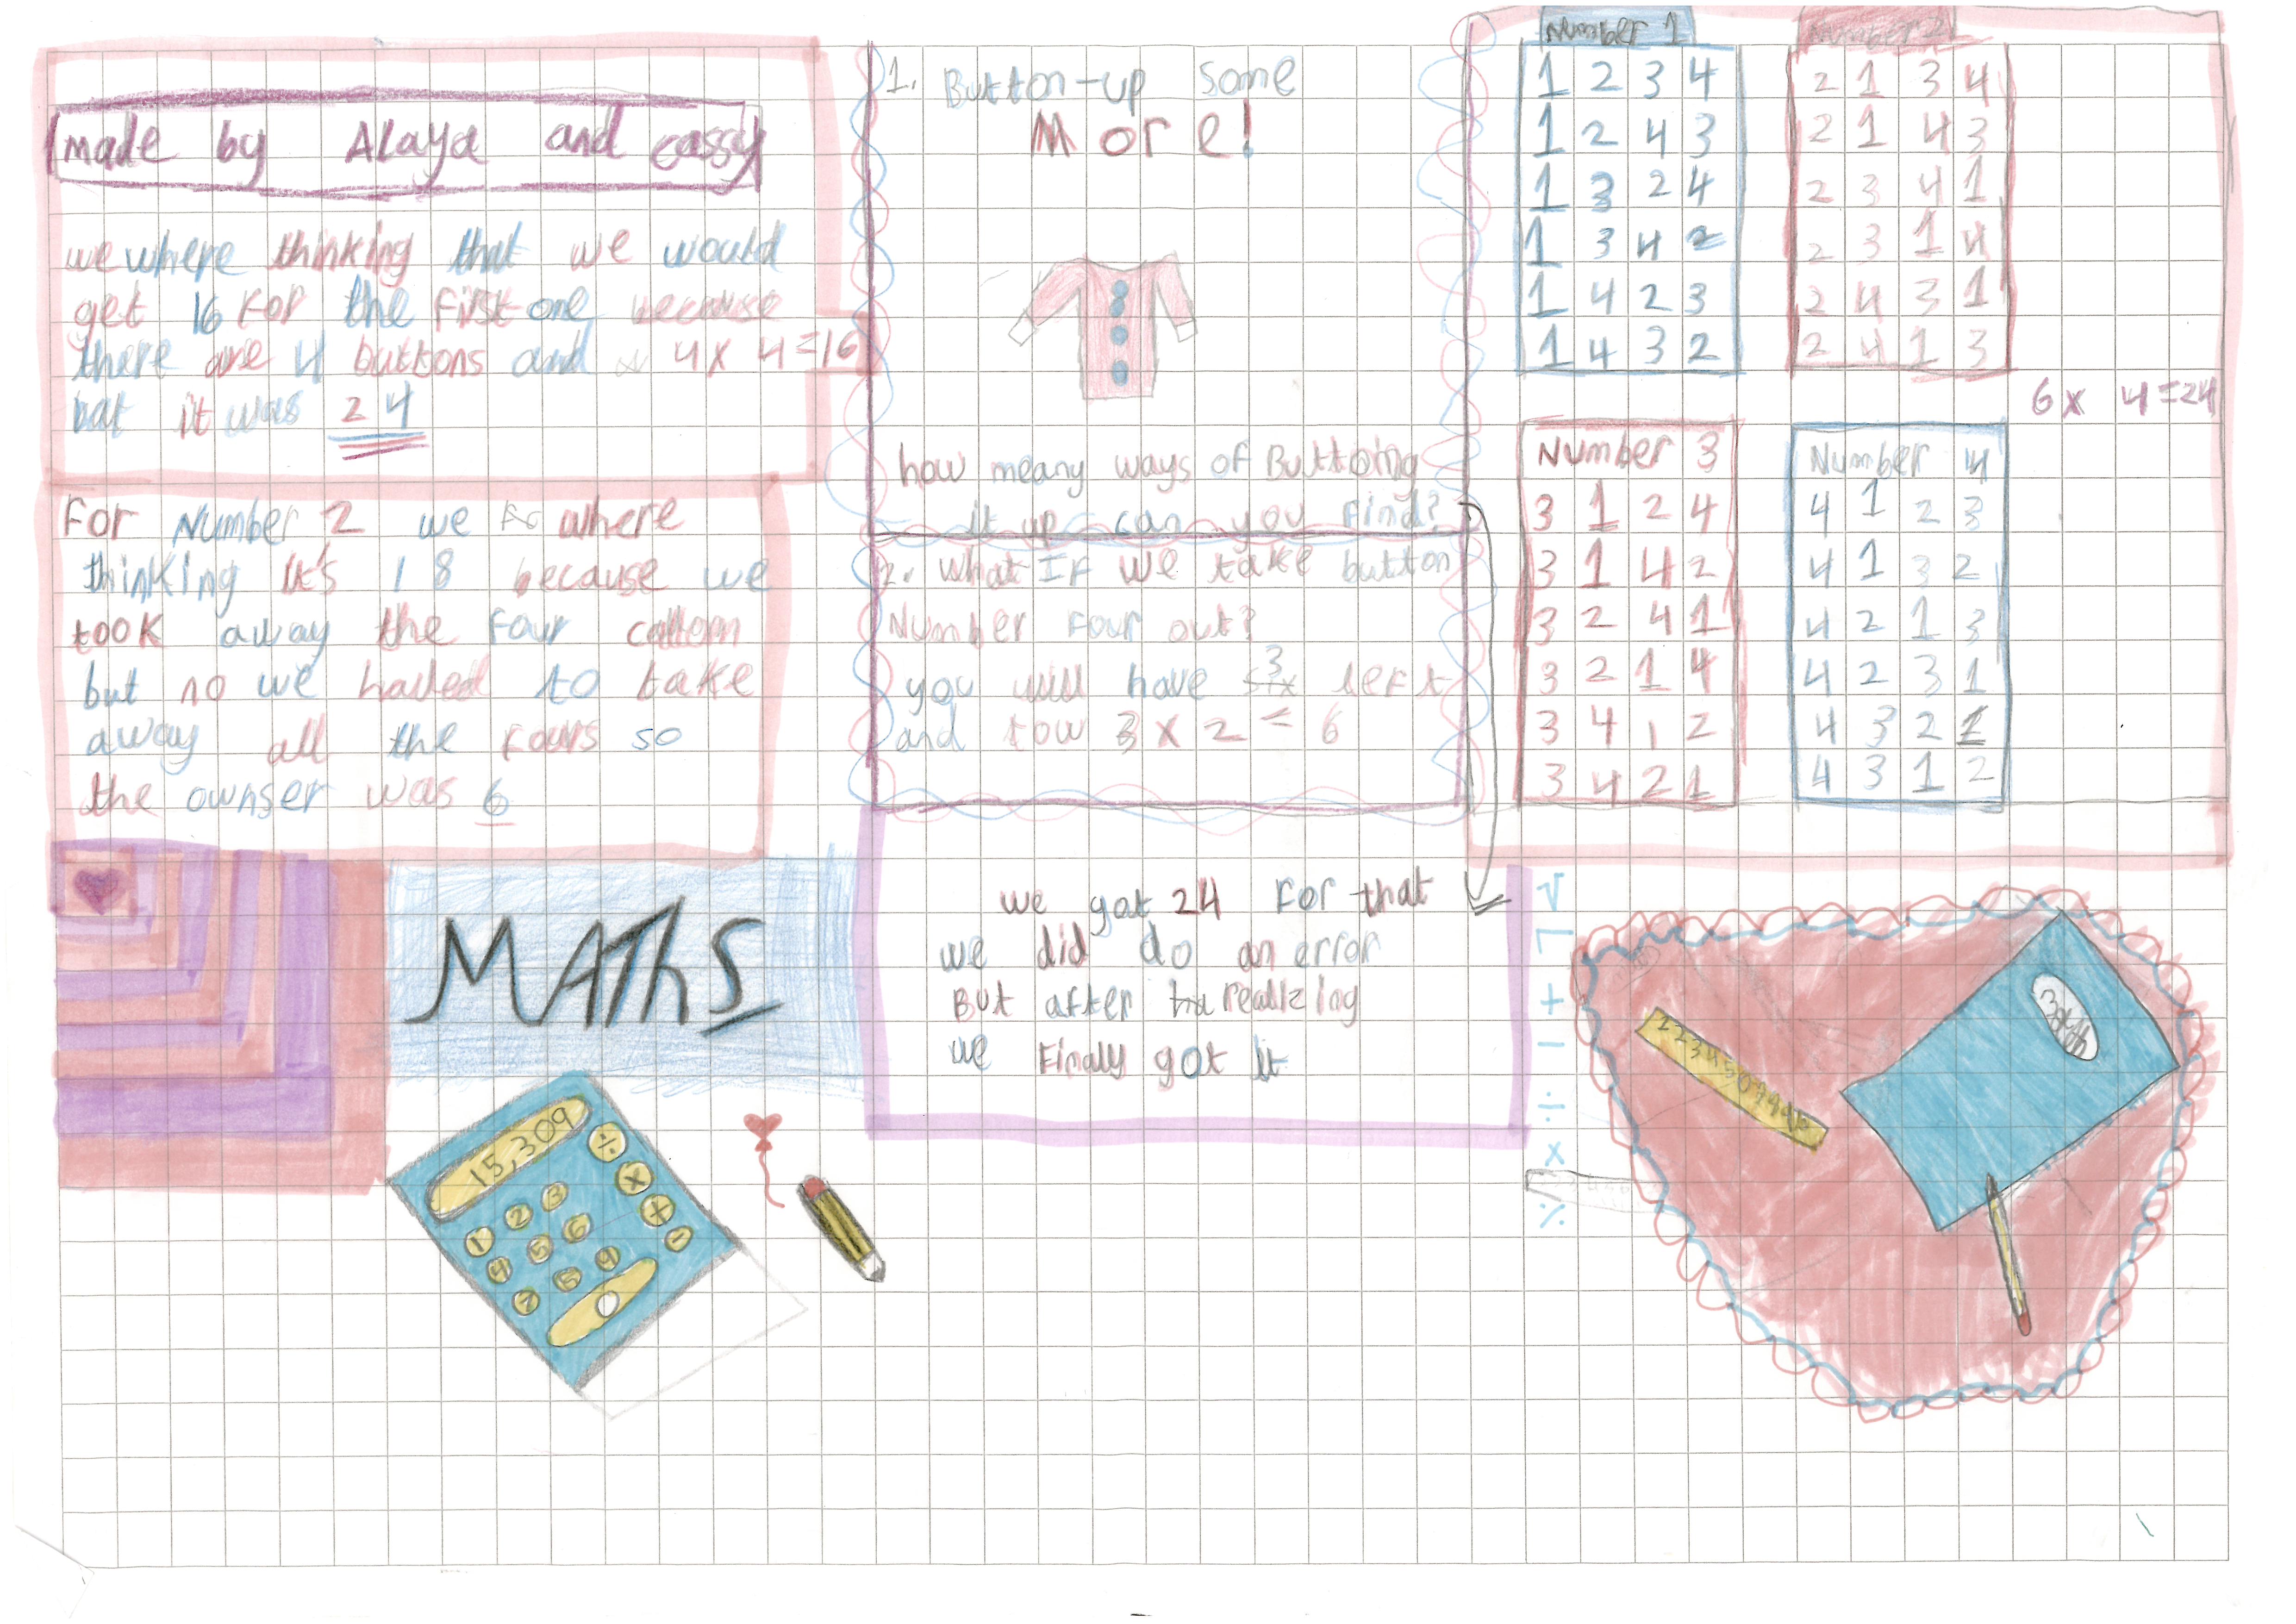 made by Alaya and cassy
we where thinking that we would
get 16 for the first one because
there are 4 buttons and 4 x 4 = 16
but it was 24
For Number 2 we where
thinking it's 18 because we
took away the four collom
but no we haved to take
away all the fours so
the ownser was 6
MAThS
15,309
÷ x + -
1 2 3
4 5 6
7 5 9
0
1. Button-up some
More!
how meany ways of Buttoing
it up can you find?
2. what IF we take button
Number four out?
you will have 3 left
and tow 3 x 2 = 6
we got 24 for that
we did do an error
But after realizing
we Finaly got it
Number 1
1 2 3 4
1 2 4 3
1 3 2 4
1 3 4 2
1 4 2 3
1 4 3 2
Number 2
2 1 3 4
2 1 4 3
2 3 4 1
2 3 1 4
2 4 3 1
2 4 1 3
6 x 4 = 24
Number 3
3 1 2 4
3 1 4 2
3 2 4 1
3 2 1 4
3 4 1 2
3 4 2 1
Number 4
4 1 2 3
4 1 3 2
4 2 1 3
4 2 3 1
4 3 2 1
4 3 1 2
√
+
-
÷
x
%